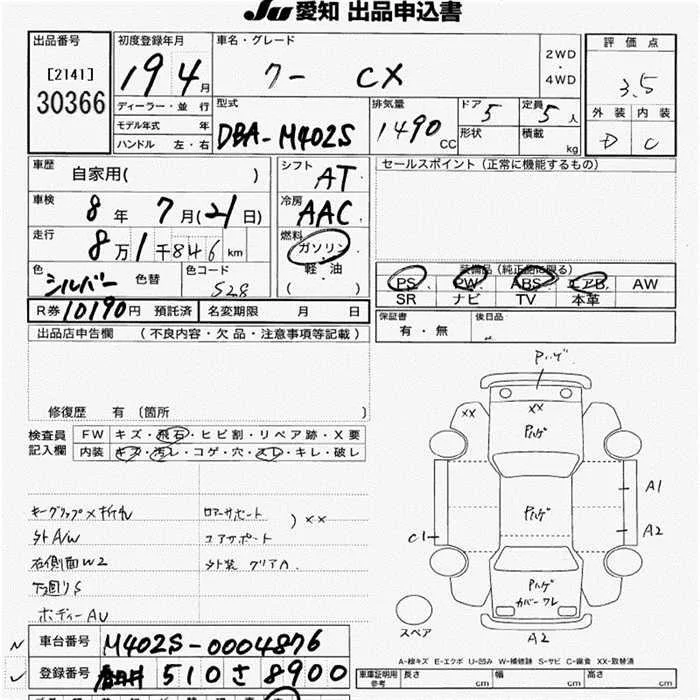 JU 愛知 出品申込書
出品番号
[2141]
30366
初度登録年月
19 4 月
ディーラー・並 行
モデル年式 年
ハンドル 左・右
車名・グレード
クー CX
2WD
・
4WD
型式
DBA-M402S
排気量
1490 CC
ドア 5
形状
定員 5 人
積載 kg
評価点
3.5
外装 内装
D C
車歴 自家用( )
車検 8 年 7 月(21日)
走行 8万1千846 km
色 シルバー 色替
色コード 528
シフト AT
冷房 AAC
燃料 ガソリン
軽・油
( )
セールスポイント(正常に機能するもの)
装備品(純正品に限る)
PS PW ABS エアB AW
SR ナビ TV 本革
R券 10190円 預託済
名変期限 月 日
保証書 有・無
後日品
出品店申告欄 (不良内容・欠品・注意事項等記載)
修復歴 有 (箇所 )
検査員
記入欄
FW キズ・飛石・ヒビ割・リペア跡・X要
内装 キズ・汚レ・コゲ・穴・スレ・キレ・破レ
キーグリップ×折れ
外A/W
右側面W2
下回りS
ボディーAU
ロアーサポート
コアサポート
) ××
外装 クリアハ
Pハゲ
××
××
Pハゲ
Pハゲ
A1
A2
C1
Pハゲ
カバーワレ
A2
スペア
A-線キズ E-エクボ U-凹み W-補修跡 S-サビ C-腐食 XX-取替済
車台番号 M402S-0004876
登録番号 510 さ 8900
車庫証明用
参考
長さ cm
幅 cm
高さ cm